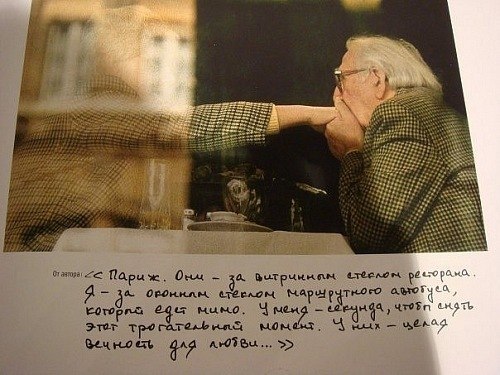 От автора: << Париж. Они – за витринным стеклом ресторана.
Я – за оконным стеклом маршрутного автобуса,
который едет мимо. У меня – секунда, чтобы снять
этот трогательный момент. У них – целая
вечность для любви... >>